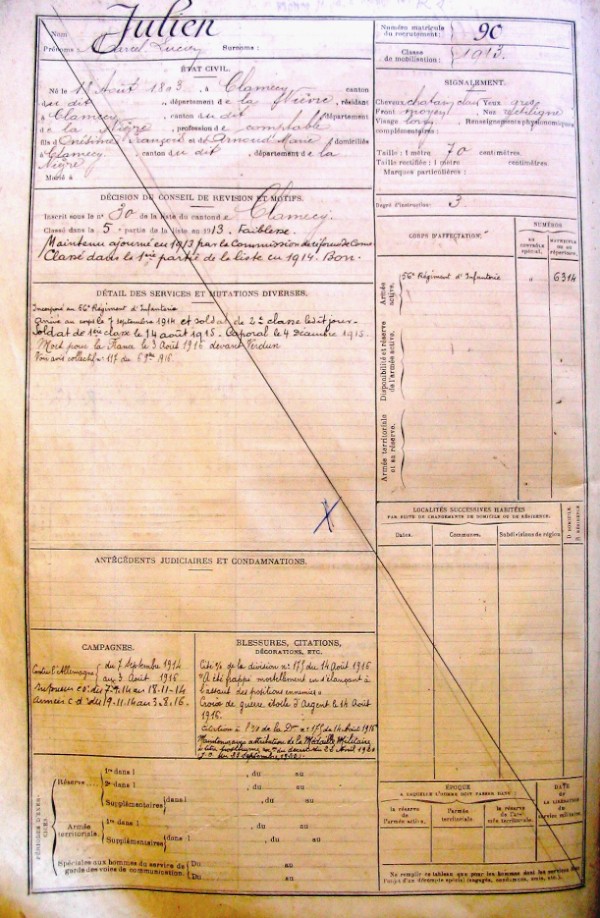 Nom : Julien
Prénoms : Marcel Lucien Surnoms :
Numéro matricule du recrutement : 90
Classe de mobilisation : 1913.
ÉTAT CIVIL.
Né le 1 Août 1893, à Clamecy, canton
du dit, département de la Nièvre, résidant
à Clamecy, canton du dit, département
de la Nièvre, profession de comptable
fils d'Onésime François et d' Marie, domiciliés
à Clamecy, canton du dit, département de la
Nièvre
Marié à
SIGNALEMENT.
Cheveux chatain clair Yeux gris
Front moyen Nez rectiligne
Visage long Renseignements physionomiques
complémentaires :
Taille : 1 mètre 70 centimètres.
Taille rectifiée : 1 mètre centimètres.
Marques particulières :
Degré d'instruction : 3
DÉCISION DU CONSEIL DE RÉVISION ET MOTIFS.
Inscrit sous le n° 30 de la liste du canton de Clamecy.
Classé dans la 5e partie de la liste en 1913. Faiblesse.
Maintenu ajourné en 1913 par la Commission de réforme de Cosne
Classé dans la 1ère partie de la liste en 1914. Bon.
CORPS D'AFFECTATION.
NUMÉROS
au contrôle spécial.
MATRICULE ou au répertoire.
Armée active.
56e Régiment d'Infanterie " 6314
Disponibilité et réserve de l'armée active.
Armée territoriale et sa réserve.
DÉTAIL DES SERVICES ET MUTATIONS DIVERSES.
Incorporé au 56e Régiment d'Infanterie
arrivé au corps le 7 septembre 1914 et soldat de 2e classe le dit jour.
Soldat de 1ère classe le 14 août 1915. Caporal le 4 Décembre 1915.
Mort pour la France le 3 Août 1916 devant Verdun
Voir avis collectif n° 117 du 1916
LOCALITÉS SUCCESSIVES HABITÉES
PAR SUITE DE CHANGEMENTS DE DOMICILE OU DE RÉSIDENCE.
Dates. Communes. Subdivisions de région D DOMICILE R RÉSIDENCE
ANTÉCÉDENTS JUDICIAIRES ET CONDAMNATIONS.
CAMPAGNES.
Contre l'Allemagne du 7 Septembre 1914
au 3 Août 1916
Intérieur c.s. du 7.9.14 au 18.11.14
Armées c.d. du 19.11.14 au 3.8.16.
BLESSURES, CITATIONS,
DÉCORATIONS, ETC.
Cité % de la division n° 175 du 14 Août 1916
"A été frappé mortellement en s'élançant à
l'assaut des positions ennemies"
Croix de guerre, étoile d'Argent le 14 Août
1916.
Citation à l'ordre de la Don n° 175 du 14 Août 1916
attribution de la Médaille Militaire
à titre posthume du décret du
J.O. du Septembre
PÉRIODES D'EXERCICES
Réserve 1re dans l , du au
2e dans l , du au
Supplémentaires dans l , du au
Armée territoriale. 1re dans l , du au
Supplémentaires dans l , du au
Spéciales aux hommes du service de garde des voies de communication. Du au
Du au
ÉPOQUE
A LAQUELLE L'HOMME DOIT PASSER DANS :
la réserve de l'armée active.
l'armée territoriale.
la réserve de l'armée territoriale.
DATE de LA LIBÉRATION du service militaire.
Ne remplir ce tableau que pour les hommes dont les services font
l'objet d'un décompte spécial (engagés, condamnés, omis, etc.).